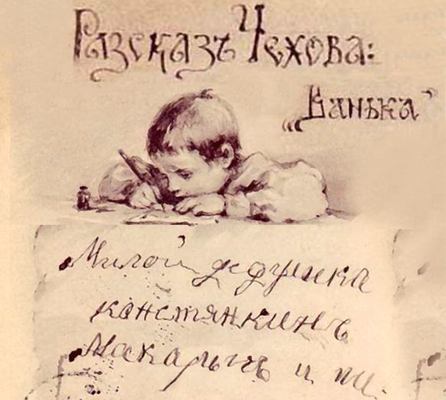 Разсказъ Чехова:
„Ванька“
Милой дедушка
канстянкинъ
Макарычъ и пи-